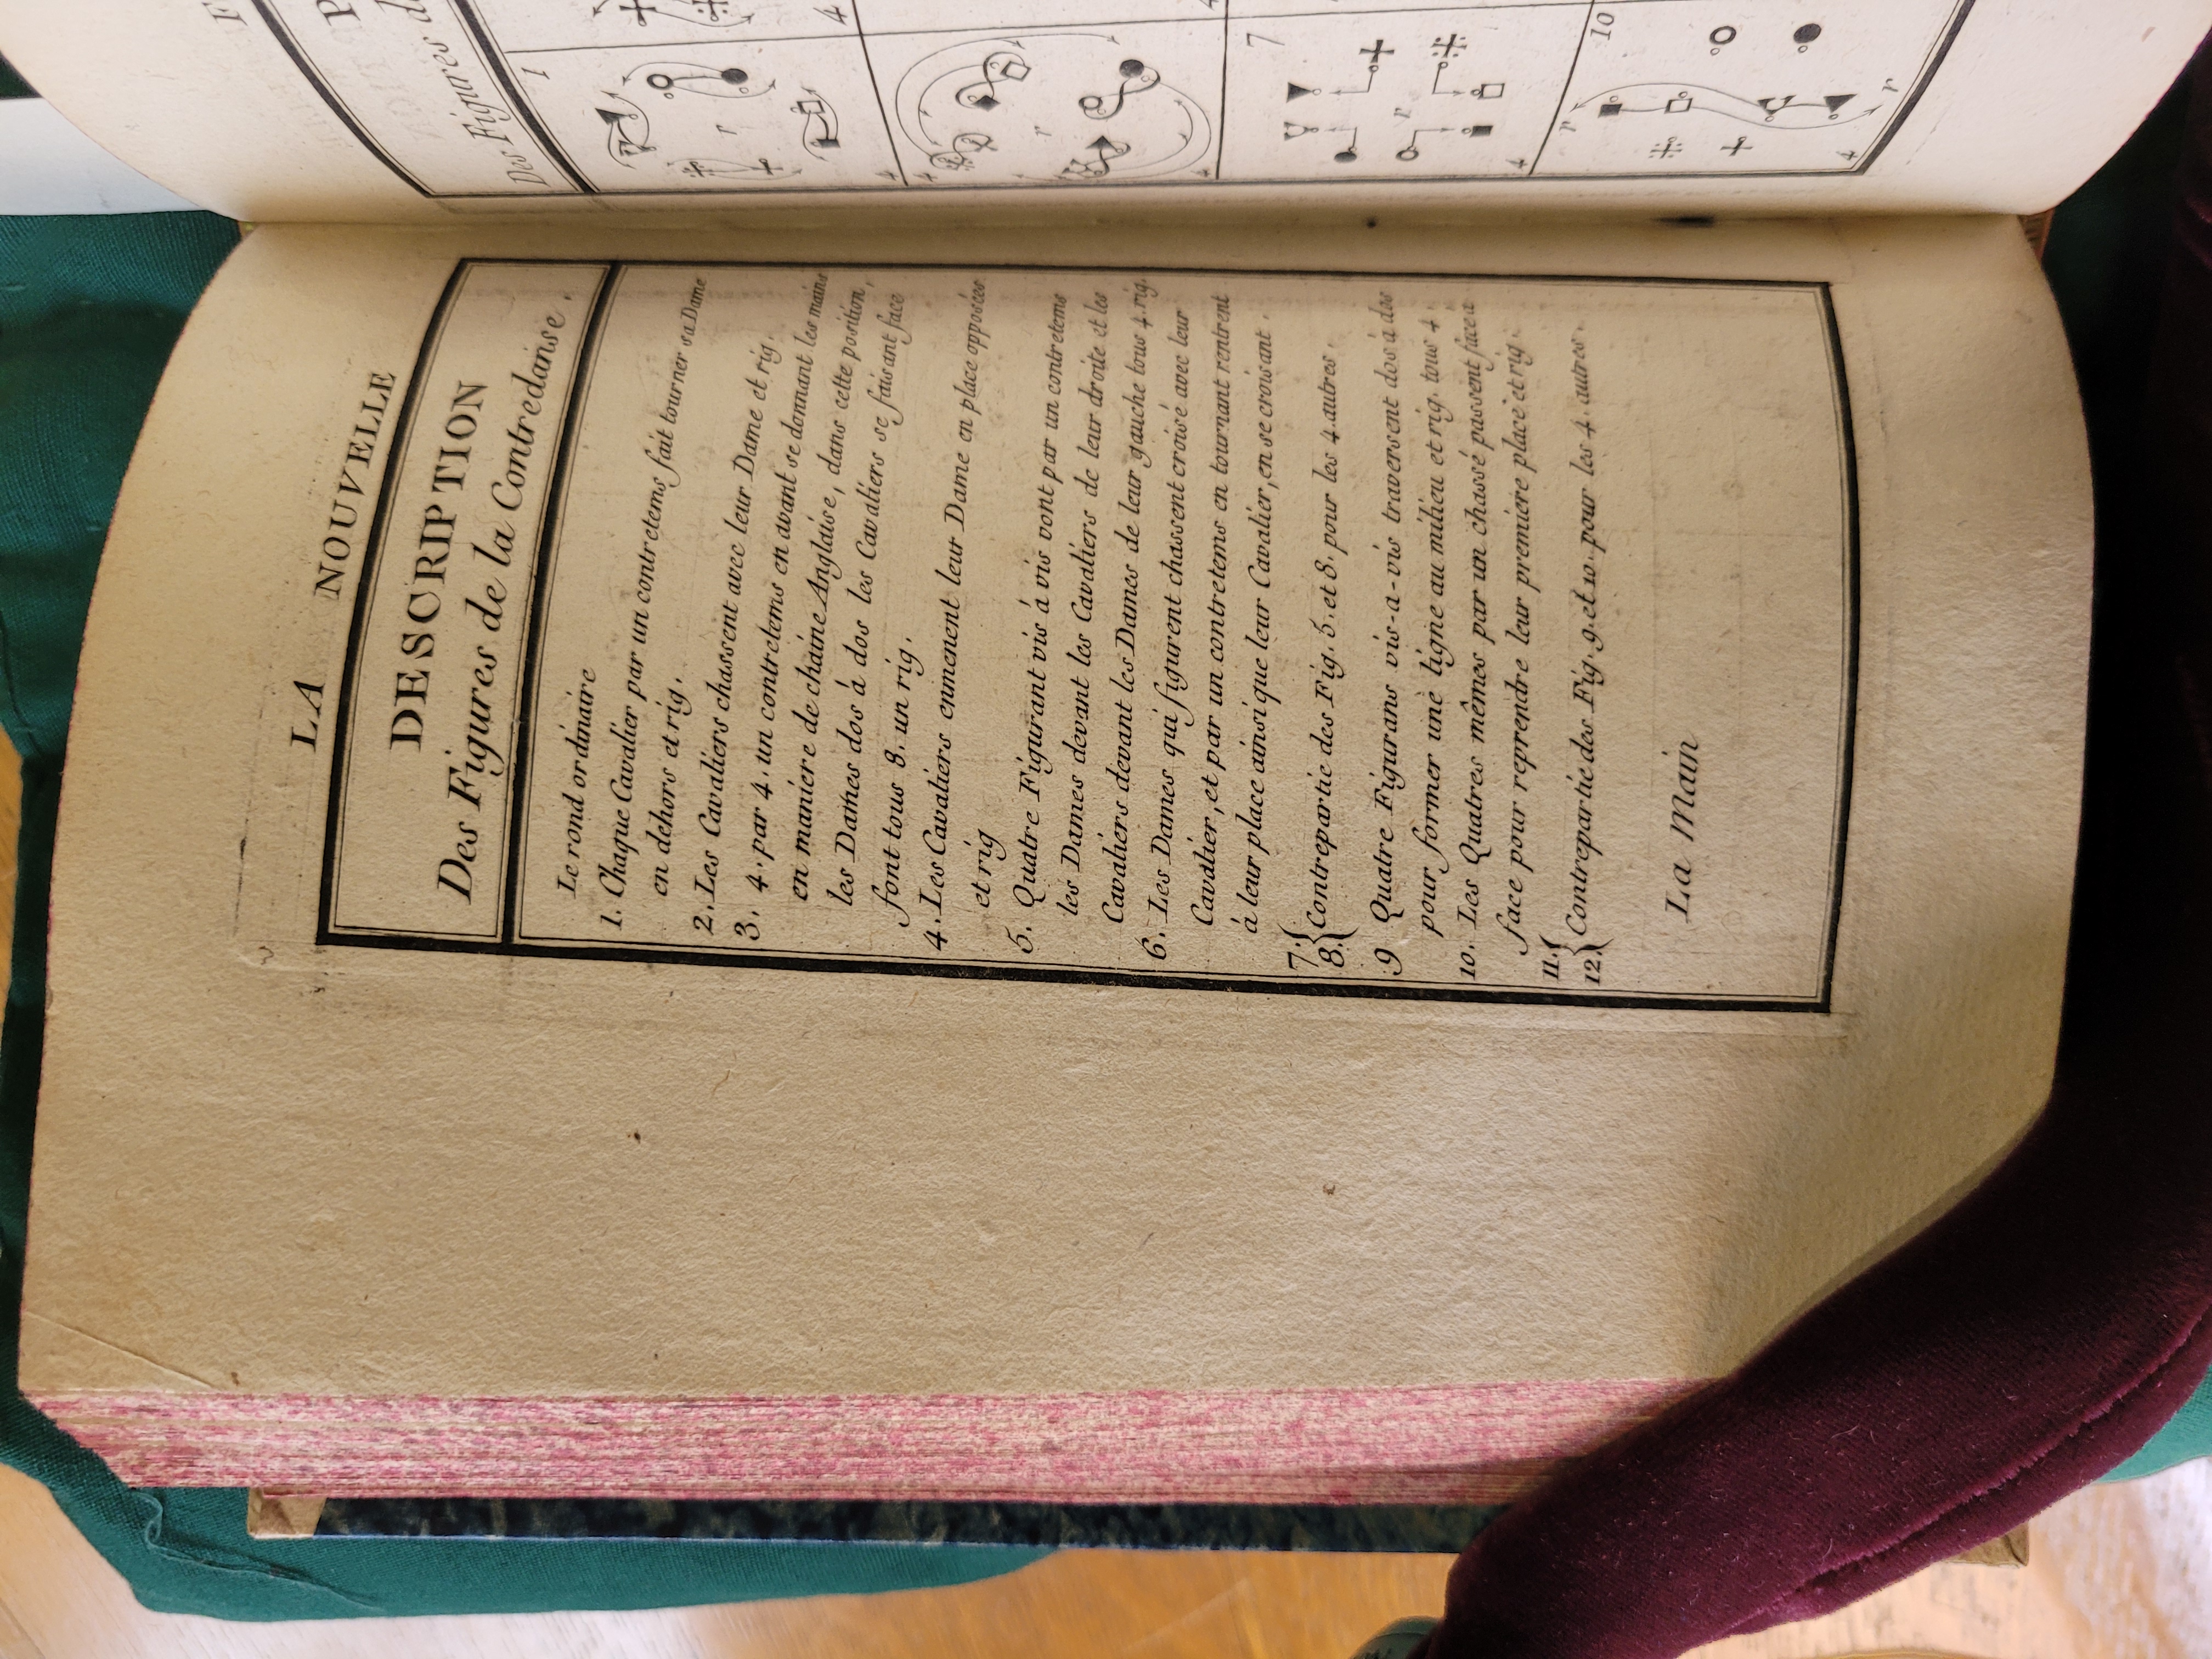 LA NOUVELLE
DESCRIPTION
Des Figures de la Contredanse.
Le rond ordinaire
1. Chaque Cavalier par un contretems fait tourner sa Dame
en dehors et rig.
2. Les Cavaliers chassent avec leur Dame et rig.
3. 4. par 4. un contretems en avant se donnant les mains
en maniere de chaine Anglaise, dans cette position,
les Dames dos á dos les Cavaliers se faisant face
font tous 8. un rig.
4. Les Cavaliers enmenent leur Dame en place opposées
et rig
5. Quatre Figurant vis á vis vont par un contretems
les Dames devant les Cavaliers de leur droite et les
Cavaliers devant les Dames de leur gauche tous 4. rig.
6. Les Dames qui figurent chassent croisé avec leur
Cavalier, et par un contretems en tournant rentrent
á leur place ainsi que leur Cavalier, en se croisant.
7.{
8.{ Contrepartie des Fig. 5. et 6. pour les 4. autres.
9 Quatre Figurans vis-a-vis traversent dos á dos
pour former une ligne au milieu et rig. tous 4.
10. Les Quatres mêmes par un chassé passent face a
face pour reprendre leur premiere place et rig.
11.{
12.{ Contrepartie des Fig. 9. et 10. pour les 4. autres.
La Main
F
P
Des Figures d
1
4
r
4
4
r
4
7
r
4
10
r
r
4